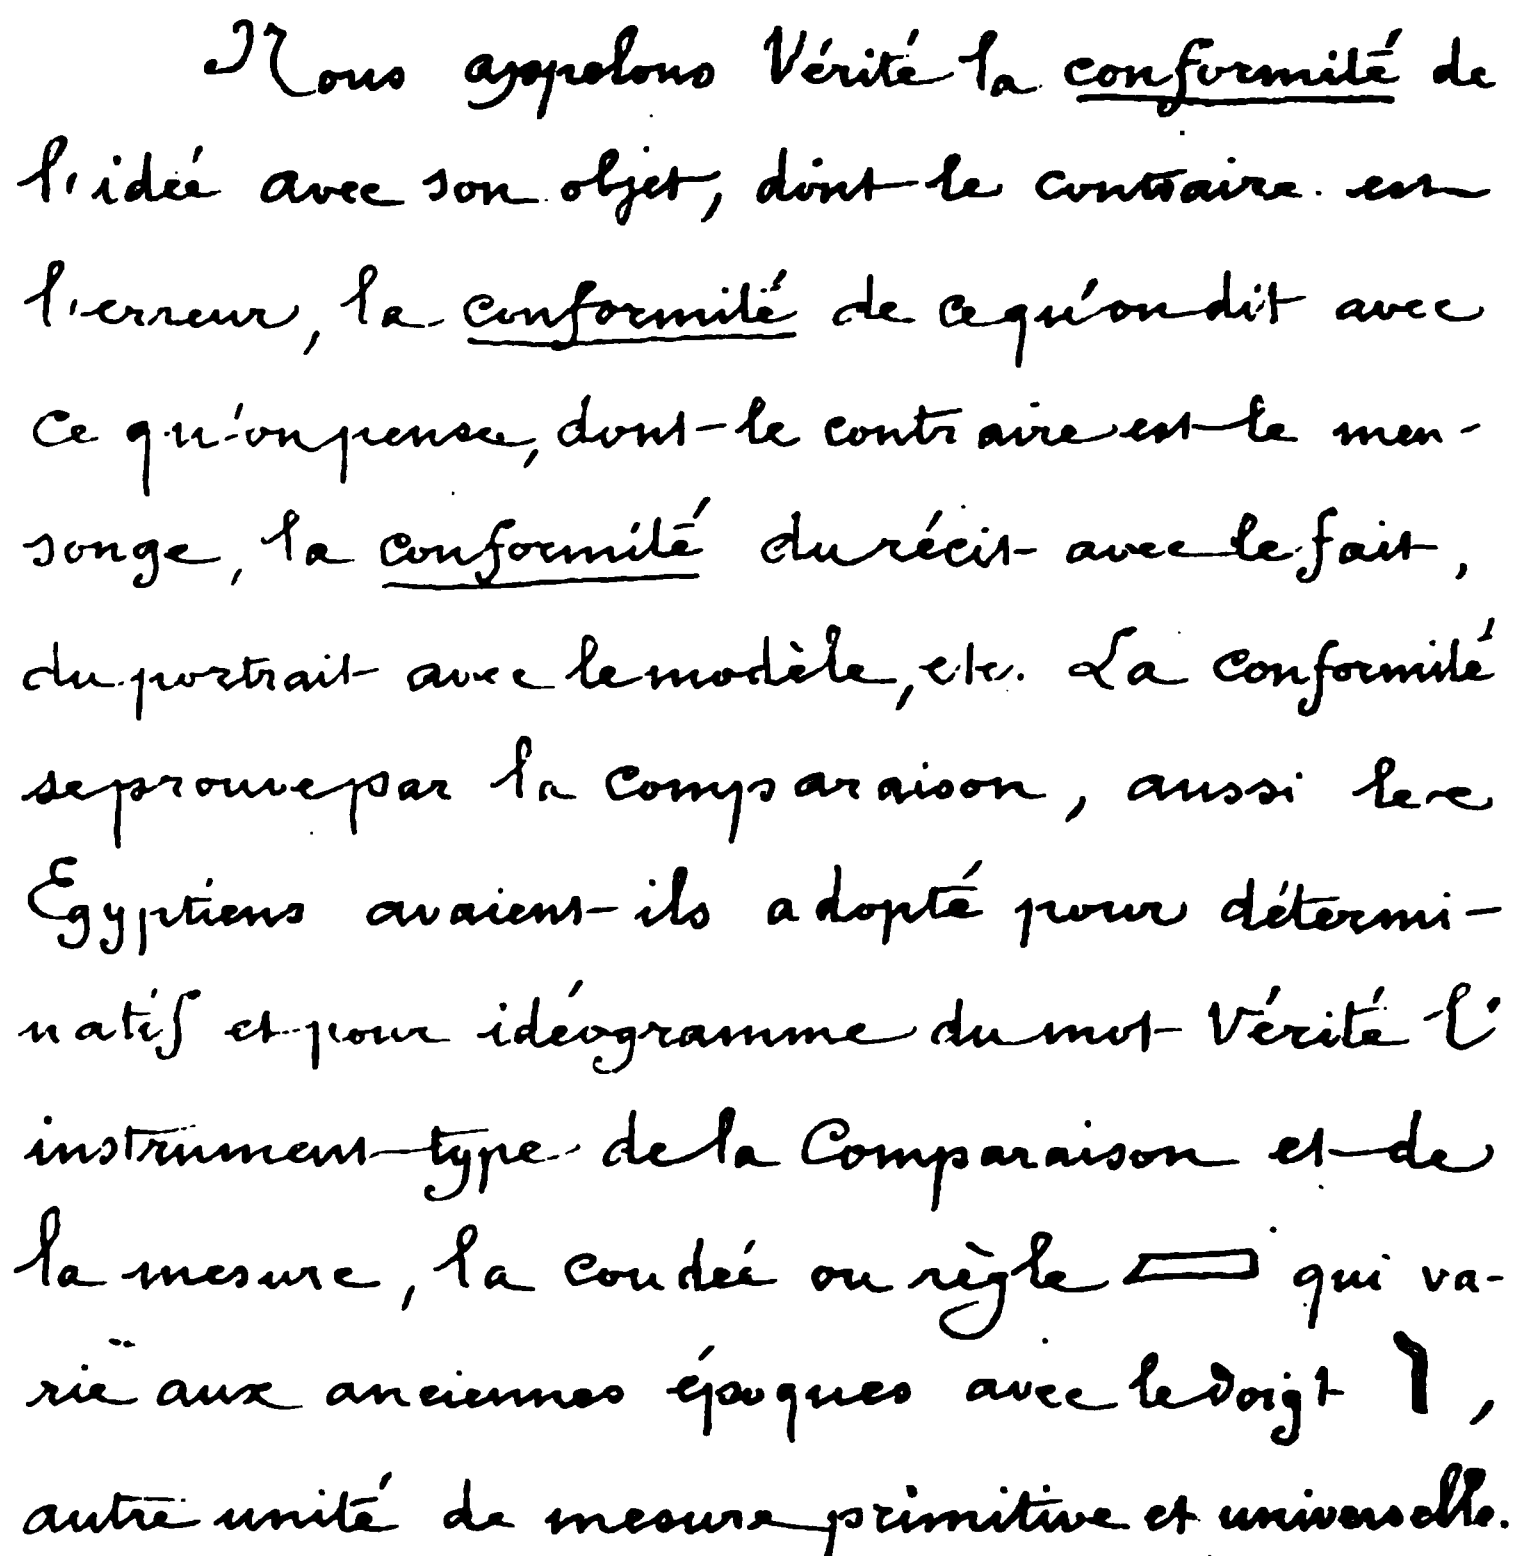 Nous appelons Vérité la conformité de
l'idée avec son objet, dont le contraire est
l'erreur, la conformité de ce qu'on dit avec
ce qu'on pense, dont le contraire est le men-
songe, la conformité du récit avec le fait,
du portrait avec le modèle, etc. La conformité
se prouve par la comparaison, aussi les
Egyptiens avaient-ils adopté pour détermi-
natif et pour idéogramme du mot Vérité l'
instrument-type de la Comparaison et de
la mesure, la coudée ou règle qui va-
rie aux anciennes époques avec le doigt ,
autre unité de mesure primitive et universelle.